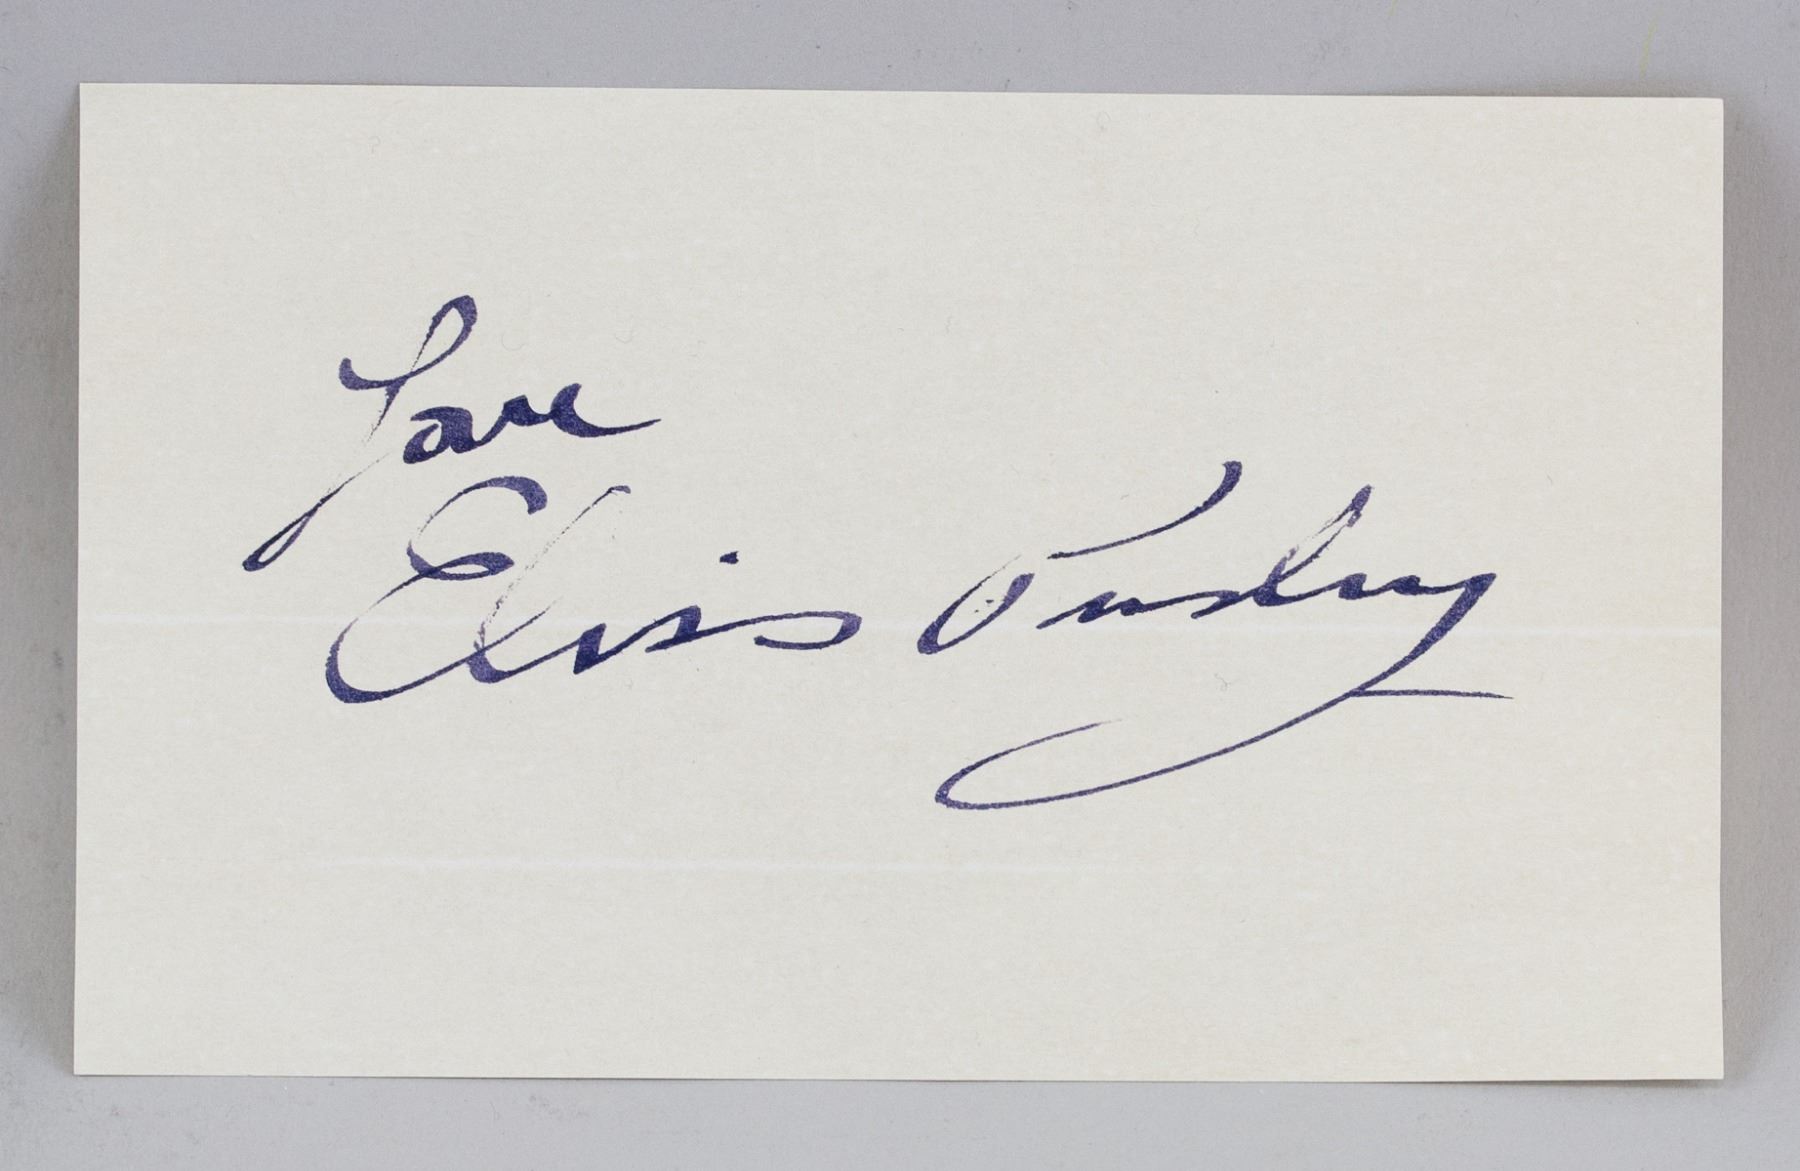 Love
Elvis Presley